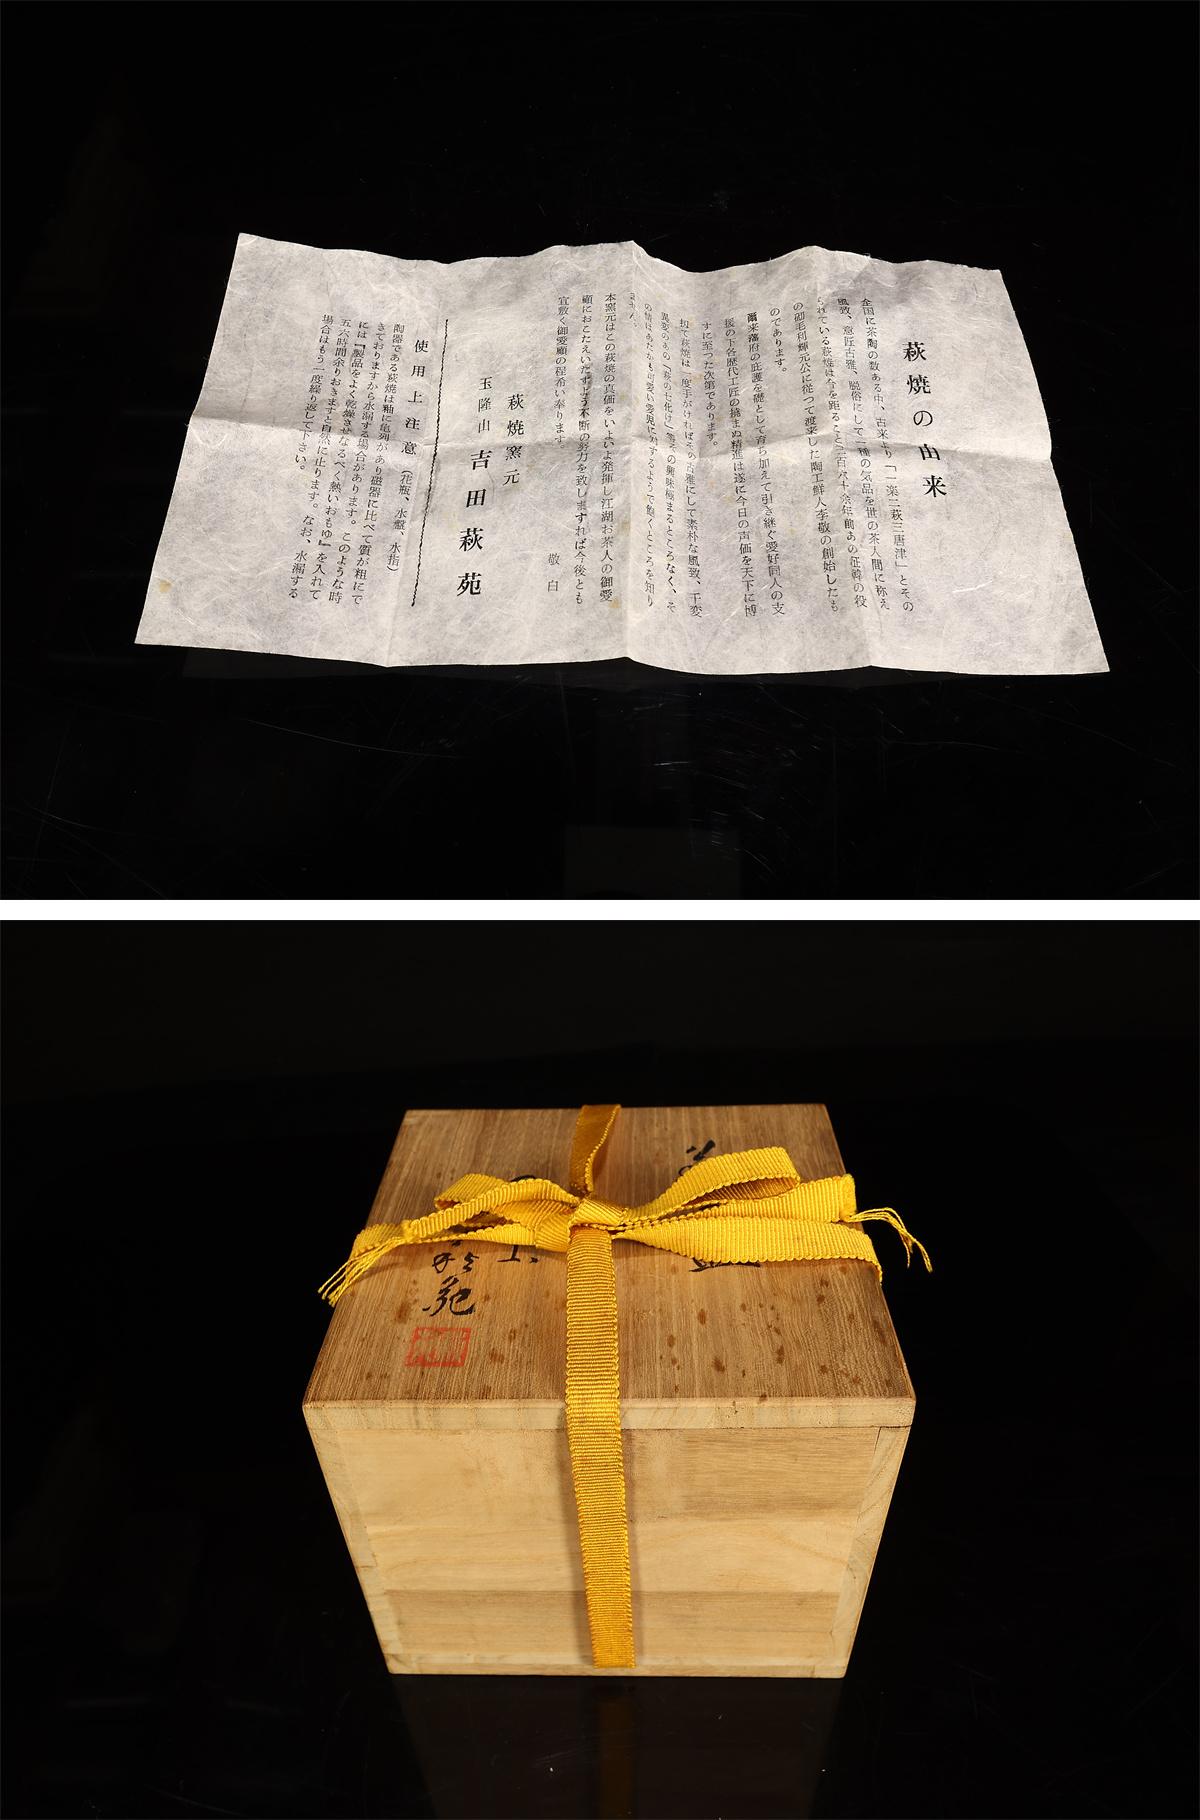 萩焼の由来
全国に茶陶の数ある中、古来より「一楽二萩三唐津」とその
風致、意匠古雅、脱俗にして一種の気品を世の茶人間に称え
られている萩焼は今を距ること三百六十余年前あの征韓の役
の砌毛利輝元公に従つて渡来した陶工鮮人李敬の創始したも
のであります。
爾来藩府の庇護を礎として育ち加えて引き継ぐ愛好同人の支
援の下各歴代工匠の撓まぬ精進は遂に今日の声価を天下に博
すに至つた次第であります。
扨て萩焼は一度手がければその古雅にして素朴な風致、千変
異変のあの「萩の七化け」等その興味極まるところなく、そ
の情はあたかも可愛い愛児に対するようで飽くところを知り
ません。
本窯元はこの萩焼の真価をいよいよ発揮し江湖お茶人の御愛
顧におこたえいたすよう不断の努力を致しますれば今後とも
宜敷く御愛顧の程希い奉ります。
敬白
萩焼窯元
玉隆山 吉田萩苑
使用上注意（花瓶、水盤、水指）
陶器である萩焼は釉に亀裂があり磁器に比べて質が粗にで
きておりますから水漏する場合があります。このような時
には『製品をよく乾燥させなるべく熱いおもゆ』を入れて
五六時間余りおきますと自然に止ります。なお、水漏する
場合はもう一度繰り返して下さい。
萩苑